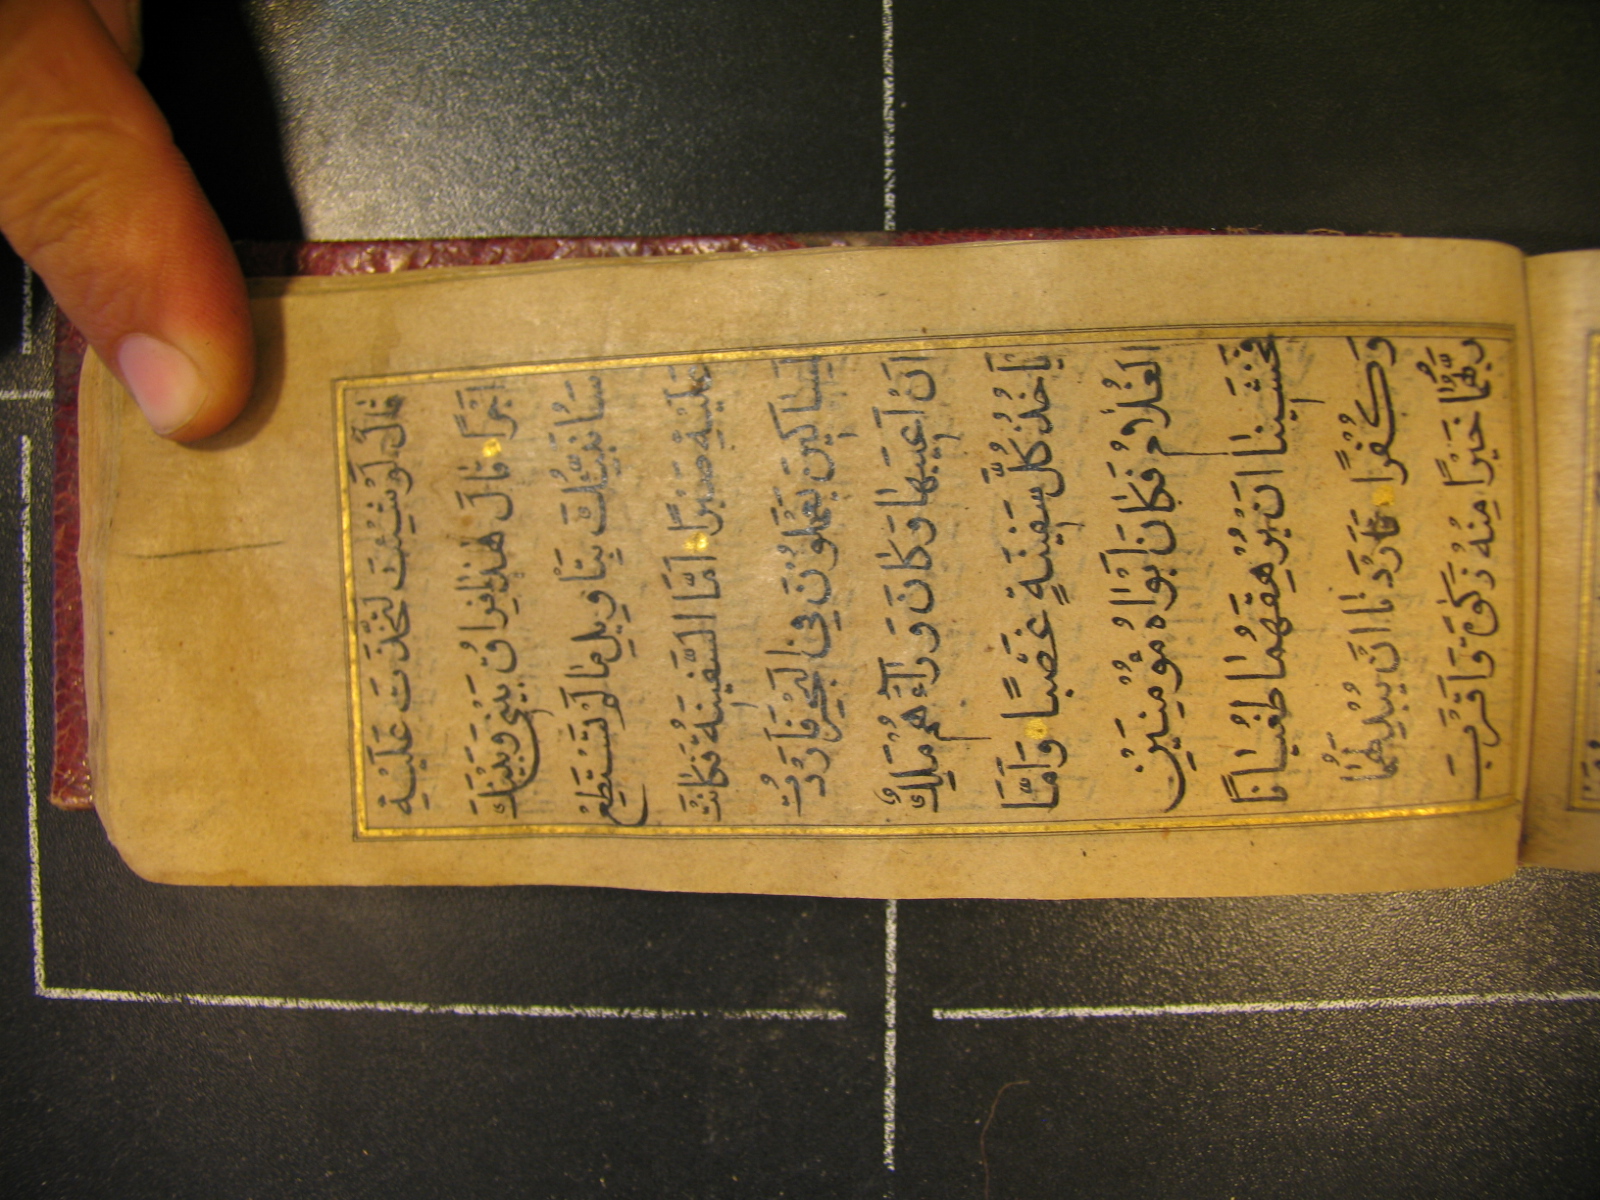 قَالَ لَوْ شِئْتَ لَتَّخَذْتَ عَلَيْهِ
اَجْرًا قَالَ هٰذَا فِرَاقُ بَيْنِي وَبَيْنِكَ
سَاُنَبِّئُكَ بِتَاْوِيلِ مَا لَمْ تَسْتَطِعْ
عَلَيْهِ صَبْرًا اَمَّا السَّفِينَةُ فَكَانَتْ
لِمَسَاكِينَ يَعْمَلُونَ فِي الْبَحْرِ فَاَرَدْتُ
اَنْ اَعِيبَهَا وَكَانَ وَرَآءَهُمْ مَلِكٌ
يَاْخُذُ كُلَّ سَفِينَةٍ غَصْبًا وَاَمَّا
الْغُلَامُ فَكَانَ اَبَوَاهُ مُؤْمِنَيْنِ
فَخَشِينَا اَنْ يُرْهِقَهُمَا طُغْيَانًا
وَكُفْرًا فَاَرَدْنَا اَنْ يُبْدِلَهُمَا
رَبُّهُمَا خَيْرًا مِنْهُ زَكٰوةً وَاَقْرَبَ